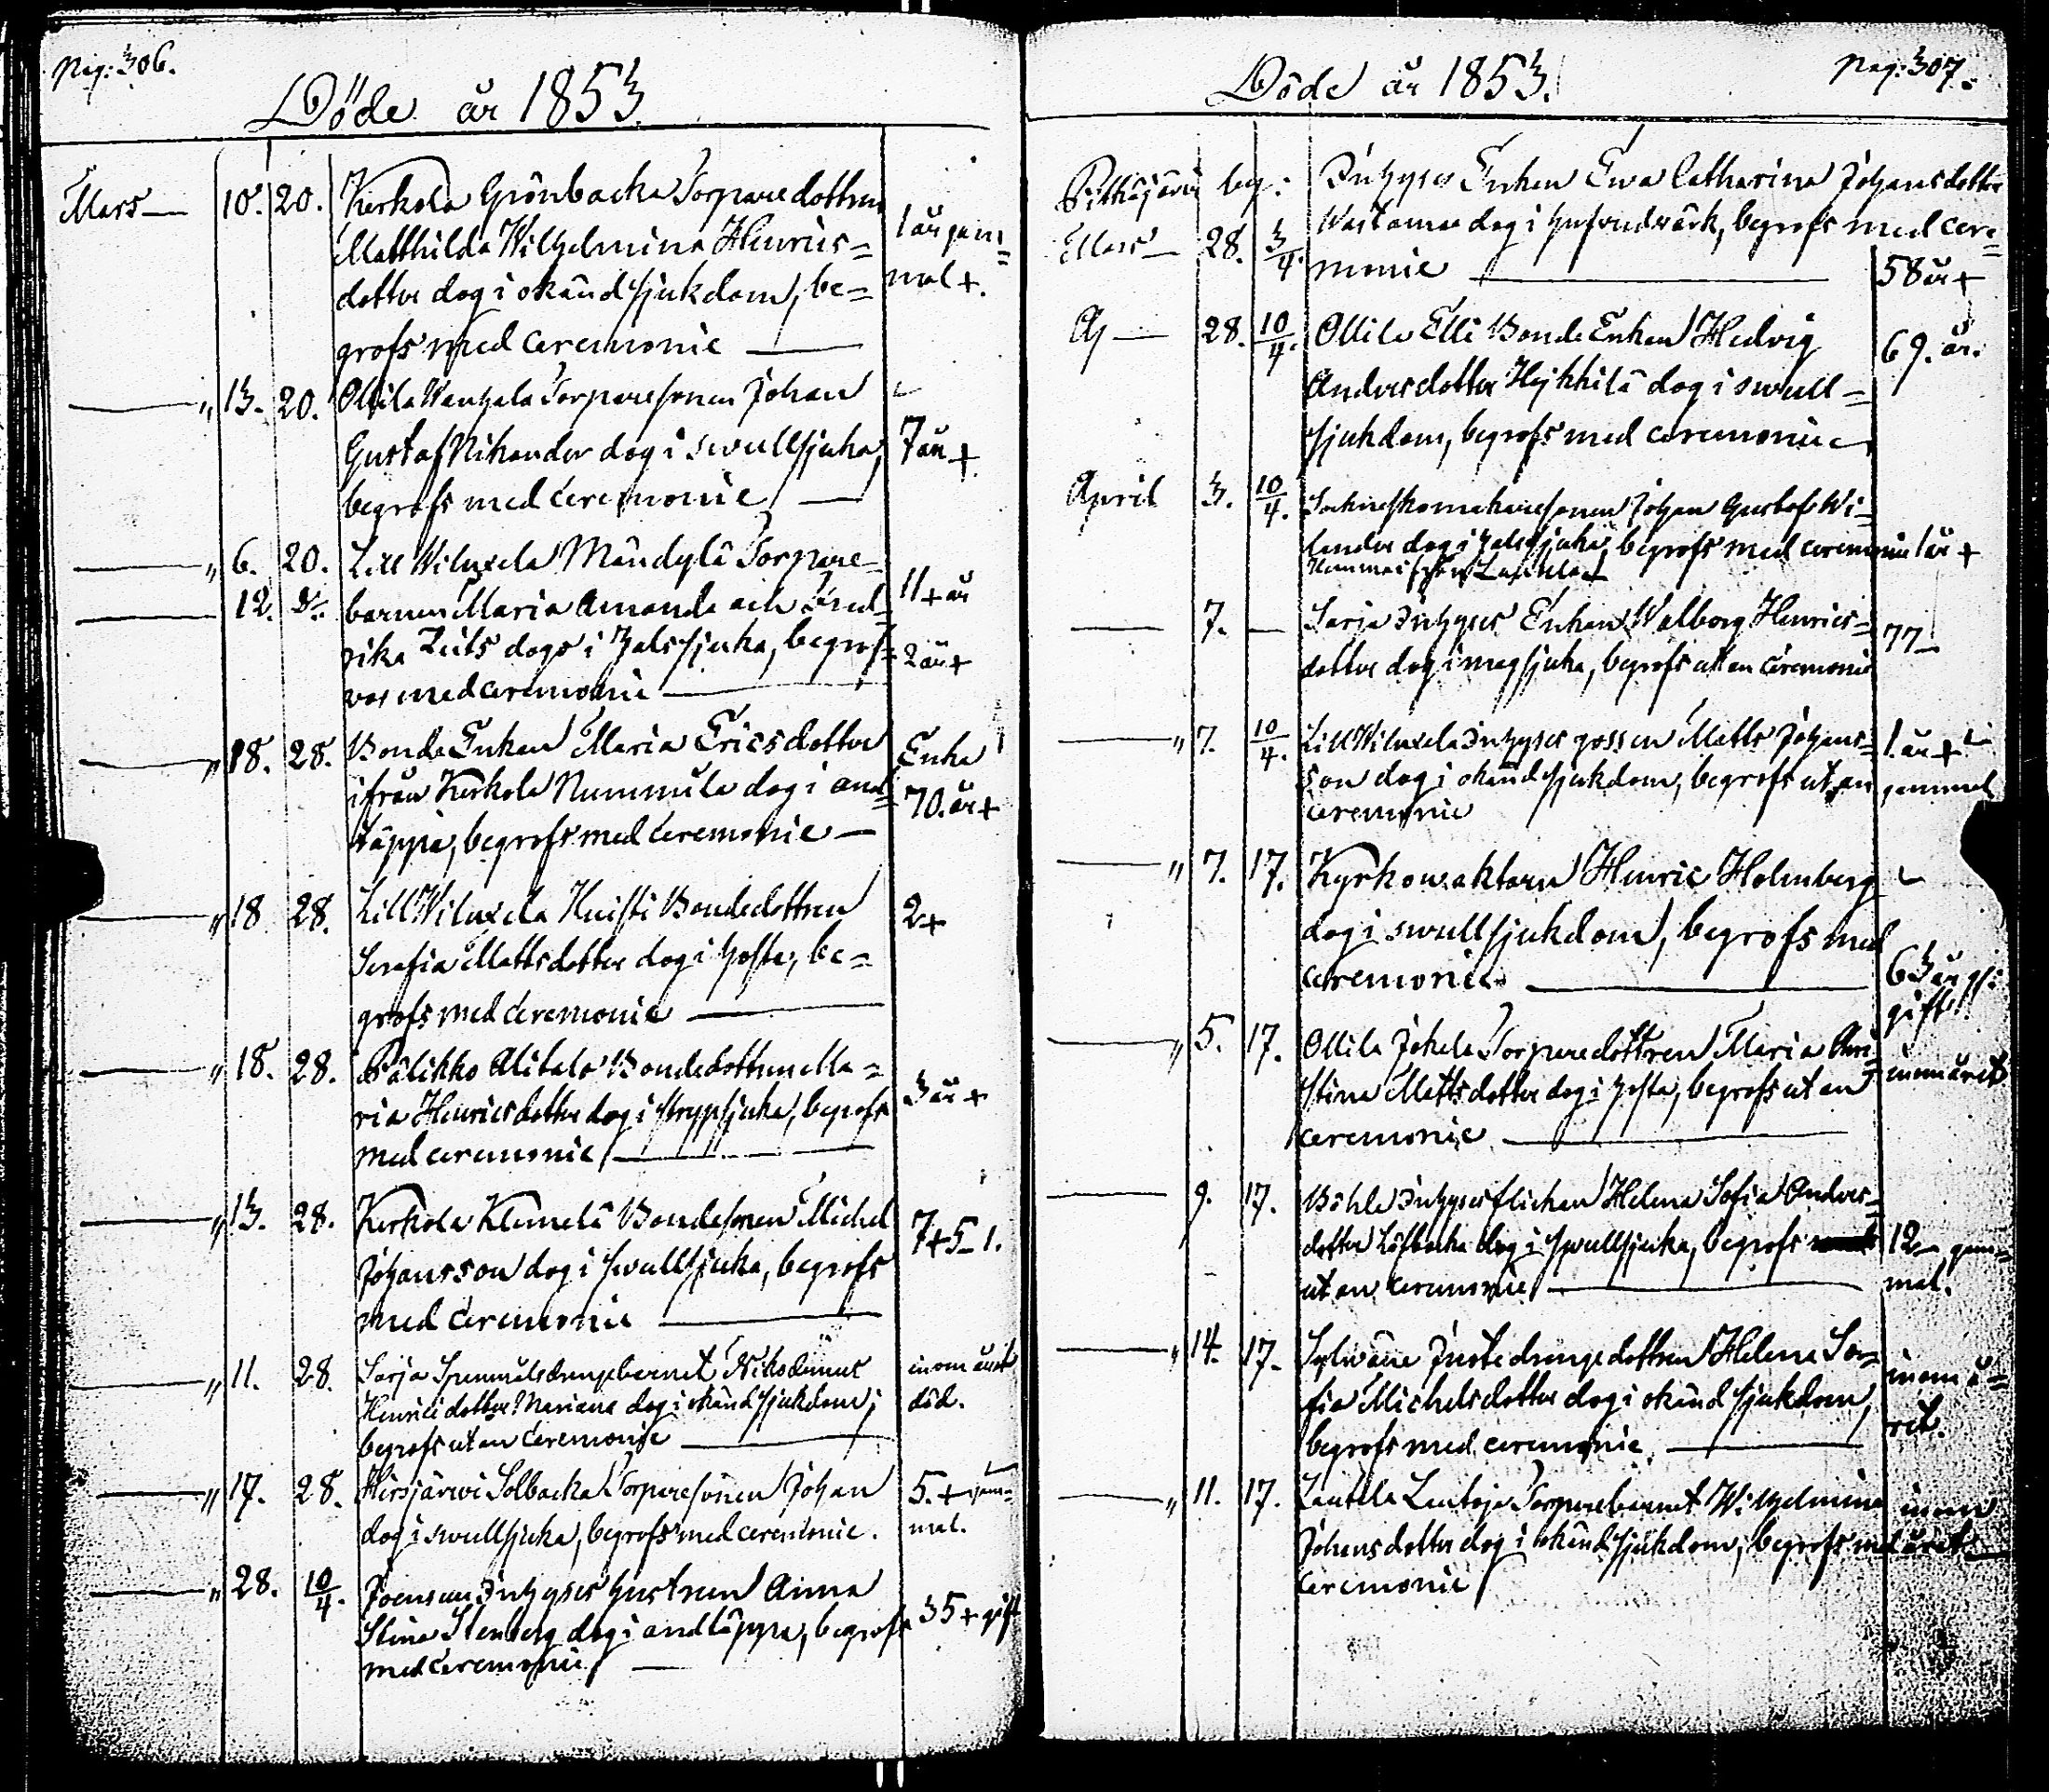 Pag: 306.
Döde år 1853.
Mars — 10. 20. Kerkola Grönbacka Torparedottren
Matthilda Wilhelmina Henrics= 1 år gam=
dotter dog i okänd sjukdom, be= mal +.
grofs med Ceremonie —
— " 13. 20. Ollila Wanhala Torparesonen Johan
Gustaf Nikander dog i swullsjuka, 7 år +
begrofs med Ceremonie —
— " 6. 20. Lill Wiluxela Mändylä Torpare=
— 12. Do barnen Maria Amanda och Fred= 11 + år
rika Luts dogo i halssjuka, begrof= 2 år +
vos med Ceremonie —
— " 18. 28. Bonde Enkan Maria Ericsdotter Enka
ifrån Kerkola Nummila dog i and= 70. år +
täppa, begrofs med Ceremonie —
— " 18 28. Lill Wiluxela Knisti Bondedottren 2 +
Serafia Mattsdotter dog i hosta, be=
grofs med Ceremonie —
— " 18. 28. Pälikkö Alitalo Bondedottren Ma=
ria Henricsdotter dog i strypsjuka, begrofs 3 år +
med ceremonie —
— " 13. 28. Kerkola Klemelä Bondesonen Michel
Johansson dog i swullsjuka, begrofs 7 + 5 – 1.
med Ceremonie —
— " 11. 28. Sarja drengebarnet inom året
Henricidotter Mariana dog i okänd sjukdom, död.
begrofs utan Ceremonie —
— " 17. 28. Hirsjärwi Solbacka Torparesonen Johan 5. + gam=
dog i swullsjuka, begrofs med ceremonie. mal.
— " 28. 10/4. Joensuu Inhyses hustrun Anna
Stina Stenberg dog i andtäppa, begrofs 35 + gift
med Ceremonie —
Pag: 307.
Döde år 1853.
Pitkäjärvi beg: Inhyses Enkan Ewa Catharina Johansdotter
Mars — 28. 3/4. Wastamaa dog i hufvudwärk, begrofs med Cere=
monie — 58 år +
— 28. 10/4. Ollila Elli Bonde Enkan Hedvig 69. år.
Andersdotter Heikkilä dog i swull=
sjukdom, begrofs med ceremonie
April 3. 10/4. Sockneskomakaresonen Johan Gustaf Wi=
lander dog i halssjuka, begrofs med ceremonie 1 år +
— 7. — Sarja Inhyses Enkan Walborg Henrics= 77 –
dotter dog i magsjuka, begrofs utan Ceremonie
— " 7. 10/4. Lill Wiluxela Inhyses gossen Matts Johans= 1. år +
son dog i okänd sjukdom, begrofs utan gammal
ceremonie
— " 7. 17. Kyrkowaktaren Henric Holmberg
dog i swullsjukdom, begrofs med
ceremonie. — 63 år
gift.
— " 5. 17. Ollila Jokela Torparedottren Maria Chri= inom året
stina Mattsdotter dog i hosta, begrofs utan
ceremonie —
— 9. 17. Böhle Inhysesflickan Helena Sofia Anders=
dotter Löfbacka dog i swullsjuka, begrofs 12 – gam=
utan Ceremonie — mal.
— " 14. 17. Sylwäne Juste drengedottren Helena So= inom å=
fia Michelsdotter dog i okänd sjukdom, ret.
begrofs med ceremonie —
— " 11. 17. Lautela Torparebarnet Wilhelmina inom
Johansdotter dog i okänd sjukdom, begrofs med året
Ceremonie